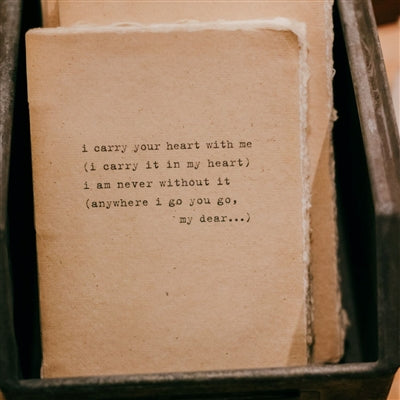 i carry your heart with me
(i carry it in my heart)
i am never without it
(anywhere i go you go,
my dear...)